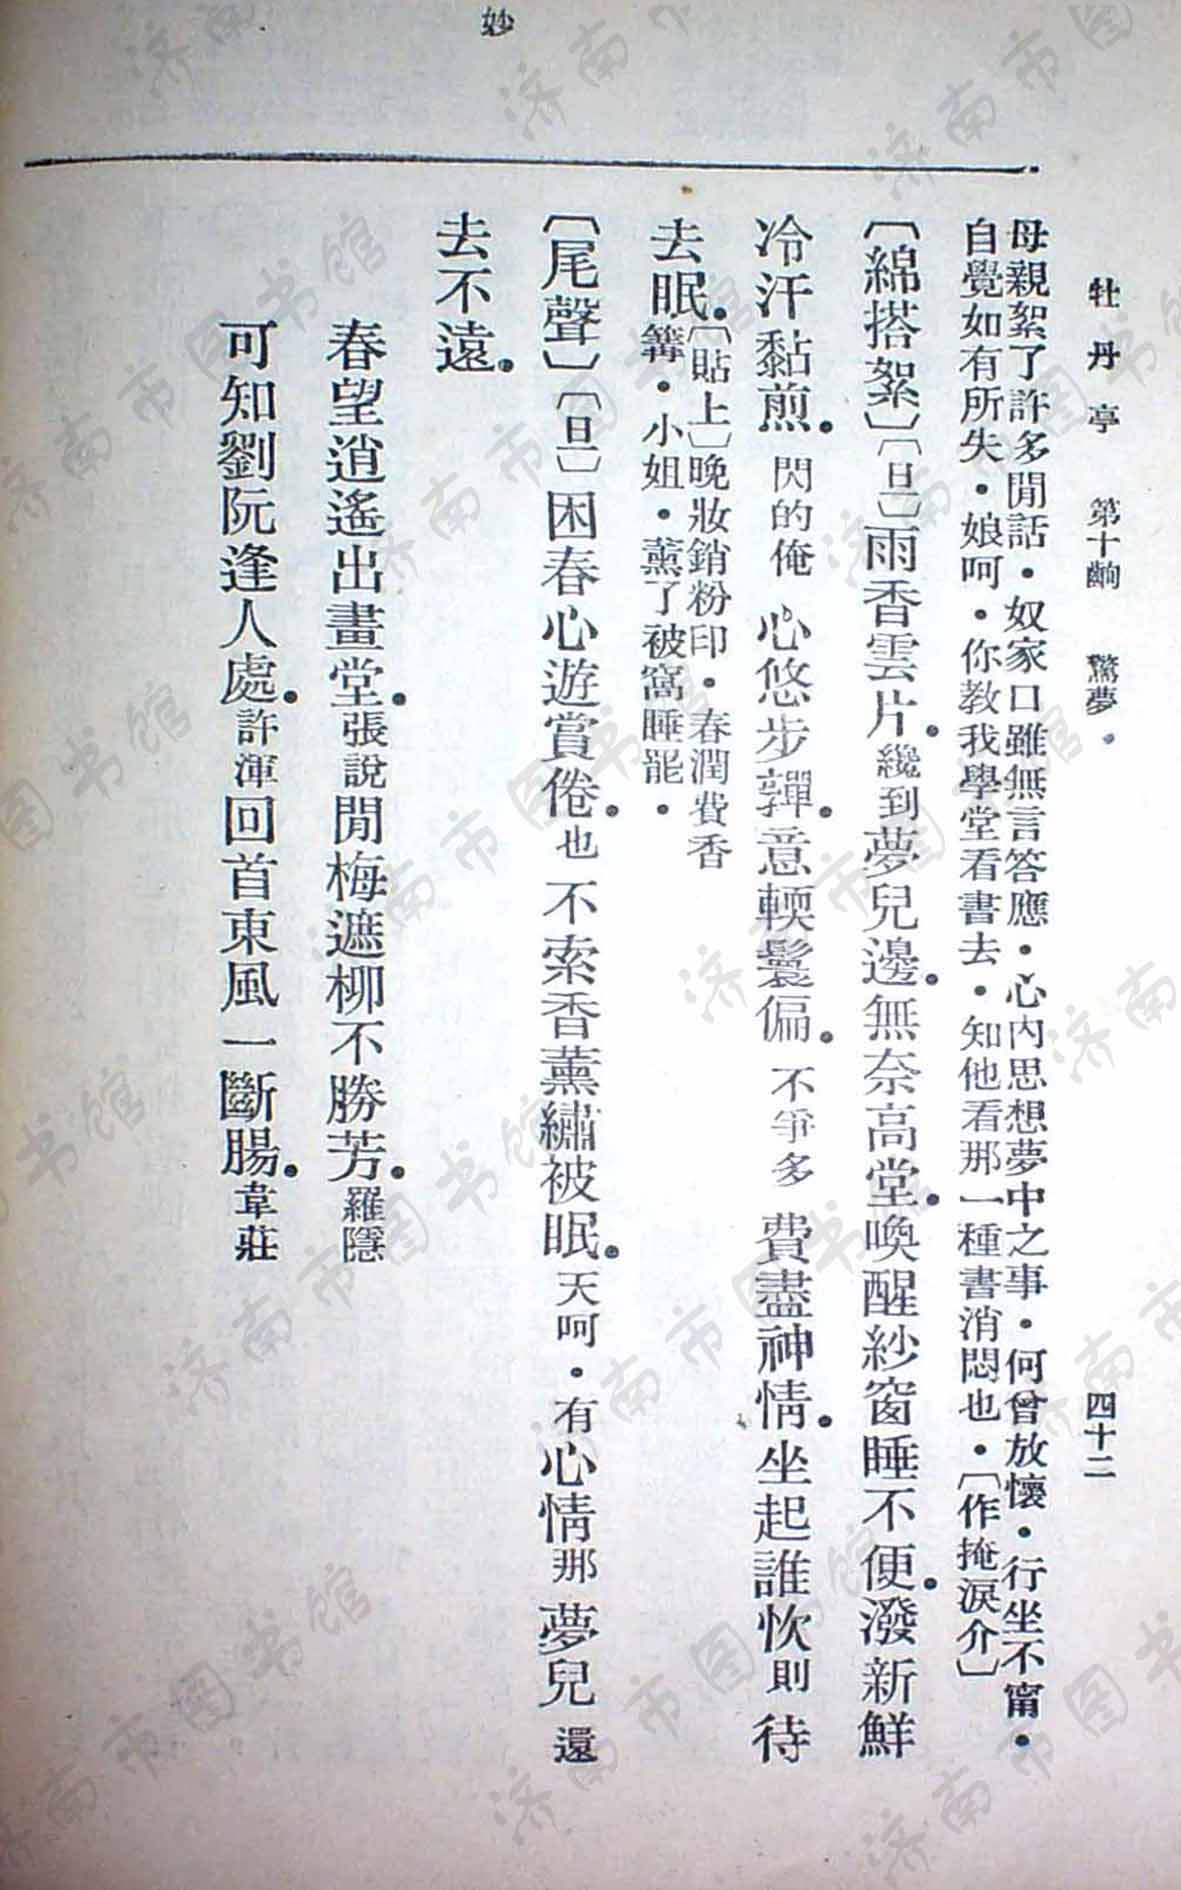 妙
牡丹亭　第十齣　驚夢・　四十二
母親絮了許多閒話・奴家口雖無言答應・心內思想夢中之事・何曾放懷・行坐不甯・
自覺如有所失・娘呵・你教我學堂看書去・知他看那一種書消悶也・〔作掩淚介〕
〔綿搭絮〕〔旦〕雨香雲片。纔到夢兒邊。無奈高堂。喚醒紗窗睡不便。潑新鮮
冷汗黏煎。閃的俺　心悠步嚲。意軟鬟偏。不爭多　費盡神情。坐起誰忺則待
去眠。〔貼上〕晚妝銷粉印・春潤費香
篝・小姐・薰了被窩睡罷・
〔尾聲〕〔旦〕困春心遊賞倦。也　不索香薰繡被眠。天呵・有心情那夢兒還
去不遠。
春望逍遙出畫堂。張說閒梅遮柳不勝芳。羅隱
可知劉阮逢人處。許渾回首東風一斷腸。韋莊
济南市图书馆